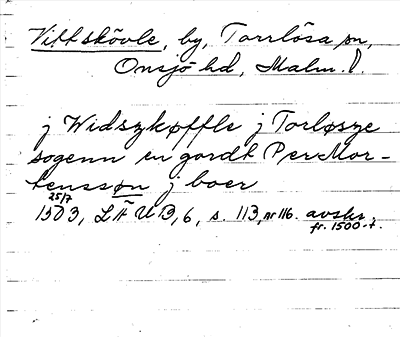 Vittskövle, by, Torrlösa sn,
Onsjö hd, Malm. l.
j Widszkøffle j Torløsze
sogenn en gardt Per Mor-
tenssøn j boer
25/7
1503, LÄUB, 6, s. 113, nr 116. avskr.
fr. 1500-t.